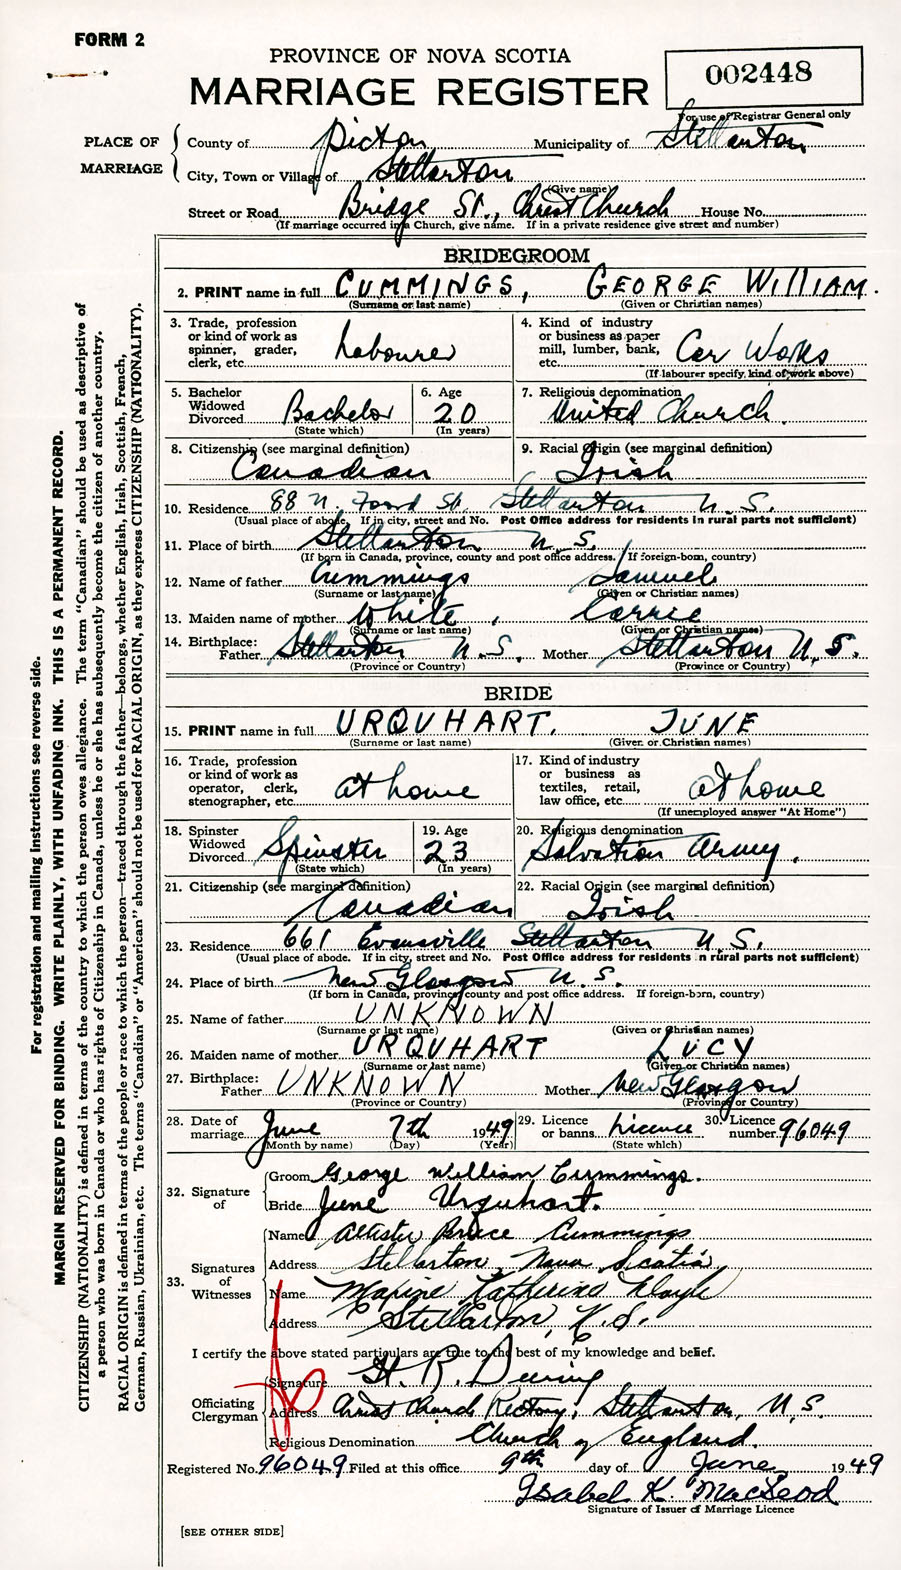 FORM 2
PROVINCE OF NOVA SCOTIA
MARRIAGE REGISTER
002448
For use of Registrar General only
PLACE OF MARRIAGE
County of Picton Municipality of Stellarton
City, Town or Village of Stellarton
(Give name)
Street or Road Bridge St., Christ Church House No.
(If marriage occurred in a Church, give name. If in a private residence give street and number)
BRIDEGROOM
2. PRINT name in full CUMMINGS, GEORGE WILLIAM.
(Surname or last name) (Given or Christian names)
3. Trade, profession or kind of work as spinner, grader, clerk, etc. Labourer
4. Kind of industry or business as paper mill, lumber, bank, etc. Car Works
(If labourer specify kind of work above)
5. Bachelor Widowed Divorced Bachelor
(State which)
6. Age 20
(In years)
7. Religious denomination United Church.
8. Citizenship (see marginal definition) Canadian
9. Racial Origin (see marginal definition) Irish
10. Residence 88 N. Foord St. Stellarton N.S.
(Usual place of abode. If in city, street and No. Post Office address for residents in rural parts not sufficient)
11. Place of birth Stellarton N.S.
(If born in Canada, province, county and post office address. If foreign-born, country)
12. Name of father Cummings Samuel
(Surname or last name) (Given or Christian names)
13. Maiden name of mother White, Carrie
(Surname or last name) (Given or Christian names)
14. Birthplace: Father Stellarton N.S. Mother Stellarton N.S.
(Province or Country) (Province or Country)
BRIDE
15. PRINT name in full URQUHART. JUNE
(Surname or last name) (Given or Christian names)
16. Trade, profession or kind of work as operator, clerk, stenographer, etc. at home
17. Kind of industry or business as textiles, retail, law office, etc. at home
(If unemployed answer "At Home")
18. Spinster Widowed Divorced Spinster
(State which)
19. Age 23
(In years)
20. Religious denomination Salvation Army.
21. Citizenship (see marginal definition) Canadian
22. Racial Origin (see marginal definition) Irish
23. Residence 661 Evansville Stellarton N.S.
(Usual place of abode. If in city, street and No. Post Office address for residents in rural parts not sufficient)
24. Place of birth New Glasgow N.S.
(If born in Canada, province, county and post office address. If foreign-born, country)
25. Name of father UNKNOWN
(Surname or last name) (Given or Christian names)
26. Maiden name of mother URQUHART LUCY
(Surname or last name) (Given or Christian names)
27. Birthplace: Father UNKNOWN Mother New Glasgow
(Province or Country) (Province or Country)
28. Date of marriage June 7th 1949
(Month by name) (Day) (Year)
29. Licence or banns Licence
(State which)
30. Licence number 96049
32. Signature of
Groom George William Cummings.
Bride June Urquhart.
33. Signatures of Witnesses
Name Allister Bruce Cummings
Address Stellarton, Nova Scotia
Name Maxine Katherine
Address Stellarton, N.S.
I certify the above stated particulars are true to the best of my knowledge and belief.
Officiating Clergyman
Signature H. R. Deering
Address Christ Church Rectory, Stellarton, N.S.
Religious Denomination Church of England.
Registered No. 96049 Filed at this office 9th day of June 1949
Isabel K. MacLeod
Signature of Issuer of Marriage Licence
[SEE OTHER SIDE]
For registration and mailing instructions see reverse side.
MARGIN RESERVED FOR BINDING. WRITE PLAINLY, WITH UNFADING INK. THIS IS A PERMANENT RECORD.
CITIZENSHIP (NATIONALITY) is defined in terms of the country to which the person owes allegiance. The term "Canadian" should be used as descriptive of
a person who was born in Canada or who has rights of Citizenship in Canada, unless he or she has subsequently become the citizen of another country.
RACIAL ORIGIN is defined in terms of the people or race to which the person—traced through the father—belongs, whether English, Irish, Scottish, French,
German, Russian, Ukrainian, etc. The terms "Canadian" or "American" should not be used for RACIAL ORIGIN, as they express CITIZENSHIP (NATIONALITY).